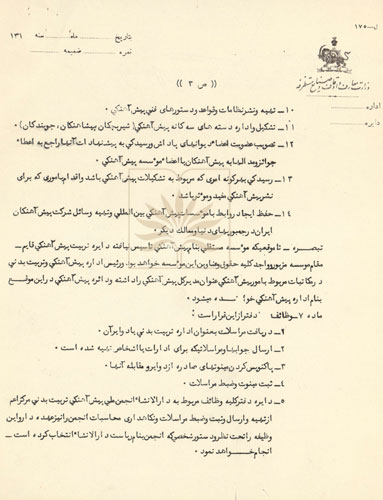 ل — ۱۷۵۰
تاریخ ماه سنه ۱۳۱
نمره ضمیمه
وزارت معارف و اوقاف و صنایع مستظرفه
اداره
دایره
(( ص ۳ ))
۱۰ـ تهیه و نشر نظامات و قواعد و دستورهای فنی پیش آهنگی .
۱۱ـ تشکیل و اداره دسته های سه گانه پیش آهنگی ( شیربچگان پیشاهنگان، جویندگان )
۱۲ـ تصویب عضویت اعضاء دیوانهای پاداش و رسیدگی به پیشنهادات آنها راجع به اعطاء
جوائز و مدالها به پیش آهنگان یا اعضاء مؤسسه پیش آهنگی .
۱۳ـ رسیدگی بهر گونه اموری که مربوط به تشکیلات پیش آهنگی باشد و اقدام باموری که برای
نشر پیش آهنگی مفید و مؤثر باشد
۱۴ـ حفظ ایجاد روابط با مؤسسات پیش آهنگی بین المللی و تهیه وسائل شرکت پیش آهنگان
ایران در جمبوریهای دنیا و ممالک دیگر .
تبصره ـ تا موقعیکه مؤسسه مستقلی بنام پیش آهنگی تأسیس نیافته دایره تربیت پیش آهنگی قایم ـ
مقام مؤسسه مزبور و واجد کلیه حقوق و عناوین این مؤسسه خواهد بود و رئیس اداره پیش آهنگی و تربیت بدنی
در مکاتبات مربوط بامور پیش آهنگی عنوان مدیر کل پیش آهنگی را داشته و دائره پیش آهنگی در این موقع
بنام اداره پیش آهنگی خوانده میشود .
ماده ۷ـ وظائف دفتر از این قرار است :
۱ـ دریافت مراسلات بعنوان اداره تربیت بدنی یا دوایر آن .
۲ـ ارسال جوابها و مراسلاتیکه برای ادارات یا اشخاص تهیه شده است .
۳ـ پاکنویس کردن مینوتهای صادره از دوایر و مقابله آنها .
۴ـ ثبت مینوت و ضبط مراسلات
۵ـ دایره دفتر کلیه وظائف مربوط به دارالانشاء انجمن ملی پیش آهنگی تربیت بدنی مرکز اعم
از تهیه و ارسال و ثبت و ضبط مراسلات و نگاهداری محاسبات انجمن را نیز عهده دار و این
وظیفه را تحت نظر و دستور شخصی که انجمن بنام ریاست دارالانشاء انتخاب کرده است ـ
انجام خواهد نمود .